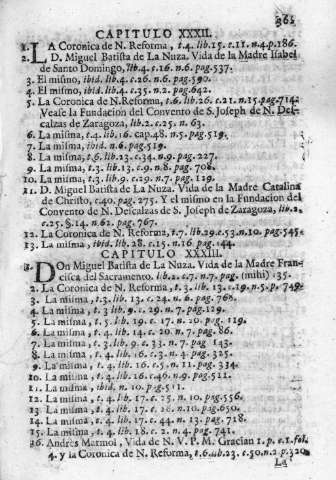 365
CAPITULO XXXII.
1. LA Coronica de N. Reforma, t.4. lib.15. c.11. n.4. p.186.
2. D. Miguel Batista de La Nuza. Vida de la Madre Isabel
de Santo Domingo, lib.4. c.16. n.6. pag.537.
3. El mismo, ibid. lib.4. c.26. n.6. pag.590.
4. El mismo, ibid. lib.4. c.35. n.2. pag.642.
5. La Coronica de N.Reforma, t.6. lib.26. c.21. n.15. pag.714.
Vease la Fundacion del Convento de S. Joseph de N. Des-
calzas de Zaragoza, lib.2. c.25. n.63.
6. La misma, t.4. lib.16. cap.48. n.5. pag.519.
7. La misma, ibid. n.6. pag.519.
8. La misma, t.6. lib.23. c.34. n.9. pag.227.
9. La misma, t.3. lib.13. c.9. n.8. pag.708.
10. La misma, t.3. lib.9. c.29. n.7. pag.129.
11. D. Miguel Batista de La Nuza. Vida de la Madre Catalina
de Christo, c.40. pag.275. Y el mismo en la Fundacion del
Convento de N. Descalzas de S. Joseph de Zaragoza, lib.2.
c.25. §.14. n.62. pag.767.
12. La Coronica de N. Reforma, t.7. lib.29. c.53. n.10. pag.545.
13. La misma, ibid. lib.28. c.15. n.16. pag.144.
CAPITULO XXXIII.
1. DON Miguel Batista de La Nuza. Vida de la Madre Fran-
cisca del Sacramento. lib.2. c.7. n.7. pag. (mihi) 35.
2. La Coronica de N. Reforma, t.3. lib.13. c.19. n.5. p.749.
3. La misma, t.3. lib.13. c.24. n.6. pag.768.
4. La misma, t.3 lib.9. c.29. n.7. pag.129.
5. La misma, t.5. lib.19. c.17. n.20. pag.119.
6. La misma, t.4. lib.14. c.20. n.7. pag.86.
7. La misma, t.3. lib.9. c.33. n.7. pag 143.
8. La misma, t.4. lib.16. c.3. n.4. pag.325.
9. La misma, t.4. lib.16. c.5. n.11. pag.334.
10. La misma, t.4. lib.16. c.46. n.9. pag.511.
11. La misma, ibid. n.10. pag.511.
12. La misma, t.4. lib.17. c.25. n.10. pag.556.
13. La misma, t.4. lib.17. c.26. n.10. pag.650.
14. La misma, t.4. lib.17. c.44. n.13. pag.718.
15. La misma, t.4. lib.18. c.2. n.4. pag.741.
16. Andrès Marmol, Vida de N. V. P. M. Gracian 1. p. c.1. fol.
4. y la Coronica de N. Reforma, t.6. lib.23. c.50. n.2. p.320.
La